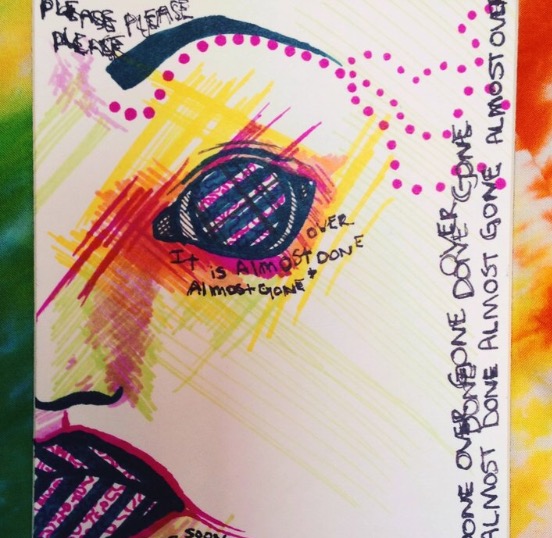 PLEASE PLEASE
PLEASE
OVER.
It is ALMOST DONE
ALMOST GONE
DONE OVER GONE DOVE GONE
ALMOST DONE ALMOST GONE ALMOST OVER
SOON